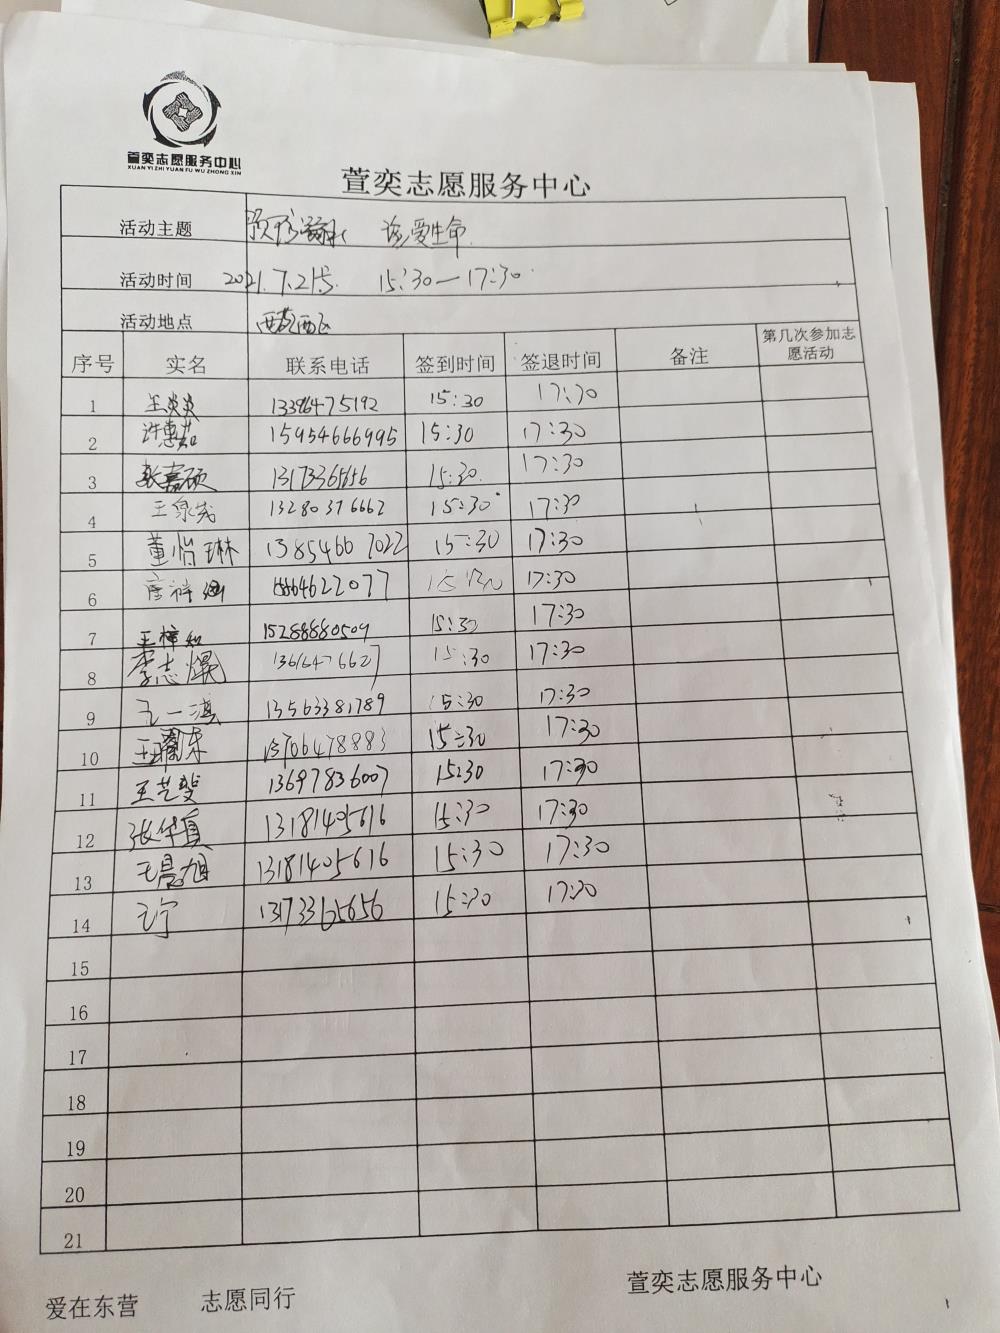 萱奕志愿服务中心
XUAN YI ZHI YUAN FU WU ZHONG XIN
萱奕志愿服务中心
活动主题 预防溺水 珍爱生命
活动时间 2021.7.21 15:30—17:30
活动地点 西苑西区
序号 实名 联系电话 签到时间 签退时间 备注 第几次参加志愿活动
1 王炎炎 13396475192 15:30 17:30
2 许惠茹 15954666995 15:30 17:30
3 张嘉硕 13173365656 15:30 17:30
4 王泉茂 13280376662 15:30 17:30
5 董怡琳 13854667022 15:30 17:30
6 4622077 17:30
7 王梓 15288880509 15:30 17:30
8 李志 15:30 17:30
9 一淇 13563381789 15:30 17:30
10 王 13706478883 15:30 17:30
11 王艺斐 13697836007 15:30 17:30
12 张华真 13181405616 15:30 17:30
13 王晨旭 13181405616 15:30 17:30
14 王宁 13173365656 15:30 17:30
15
16
17
18
19
20
21
爱在东营 志愿同行 萱奕志愿服务中心